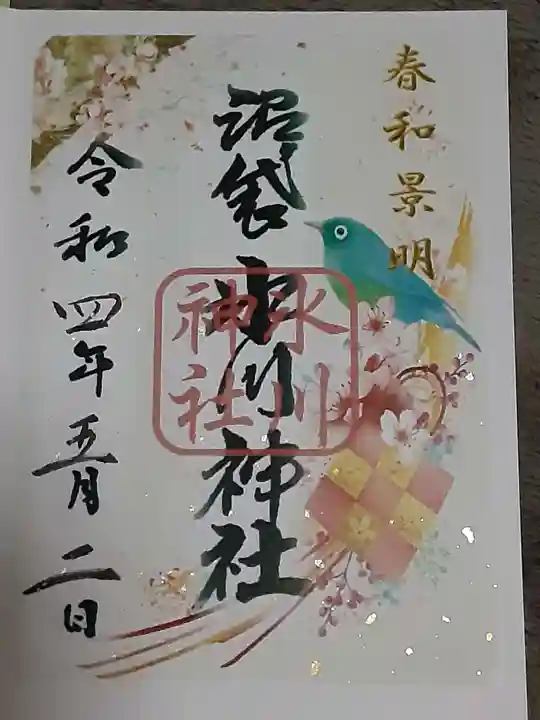 春和景明
沼袋氷川神社
氷川
神社
令和四年五月二日